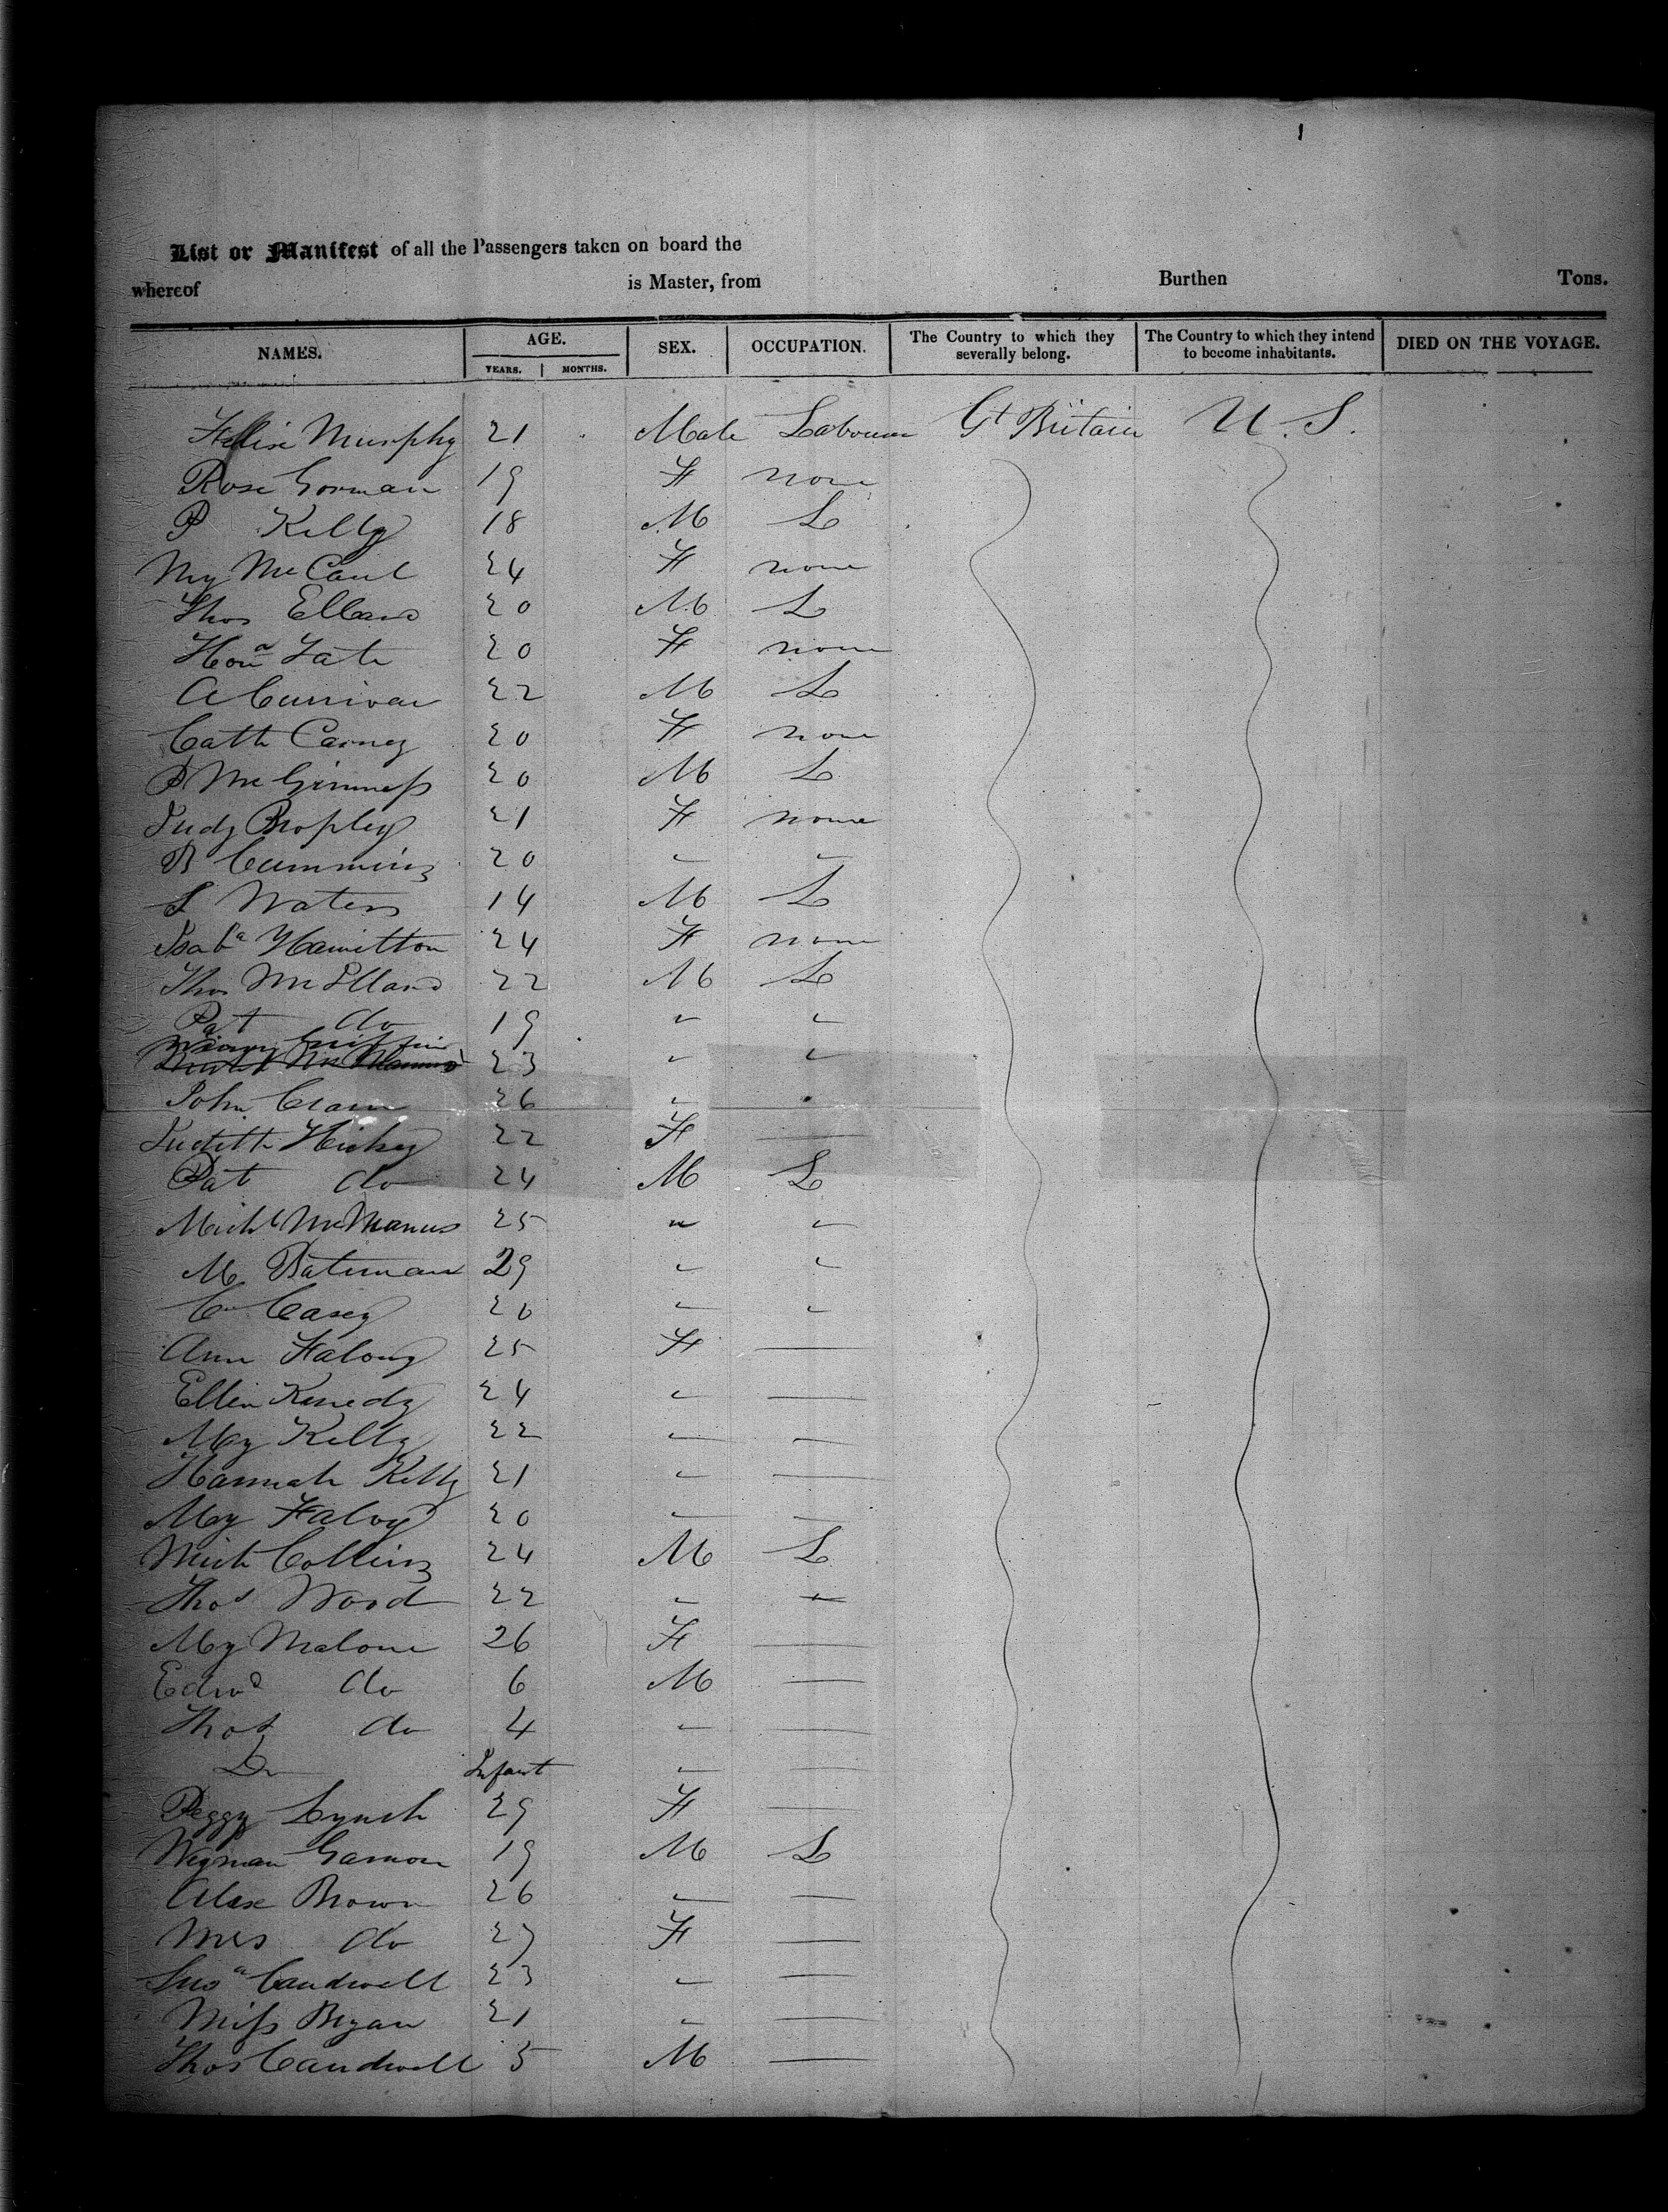 1
List or Manifest of all the Passengers taken on board the
whereof is Master, from Burthen Tons.
NAMES. AGE. SEX. OCCUPATION. The Country to which they severally belong. The Country to which they intend to become inhabitants. DIED ON THE VOYAGE.
YEARS. MONTHS.
Murphy 21 Male Labourer Gt Britain U. S.
Rose Gorman 19 F none
P Kelly 18 M L
My McCaul 24 F none
Thos Elland 20 M L
Hona Tate 20 F none
A 22 M L
Cath Carney 20 F none
P McGinness 20 M L
Judy 21 F none
B Cummins 20
S Waters 14 M L
Isaba Hamilton 24 F none
Thos McElland 22 M L
Pat do 19
Griffin
23
John 26
Judith Hickey 22 F
Pat do 24 M L
Michl McManus 25
M Bateman 29
C Casey 20
Ann 25 F
Ellen Kenedy 24
My Kelly 22
Hannah Kelly 21
My 20
Mich Collins 24 M L
Thos Wood 22
My Malone 26 F
Edwd do 6 M
Thos do 4
Do Infant
Peggy Lynch 29 F
19 M L
Alex Brown 26
Mrs do 27 F
Caudwell 23
Miss Bryan 21
Thos Caudwell 5 M